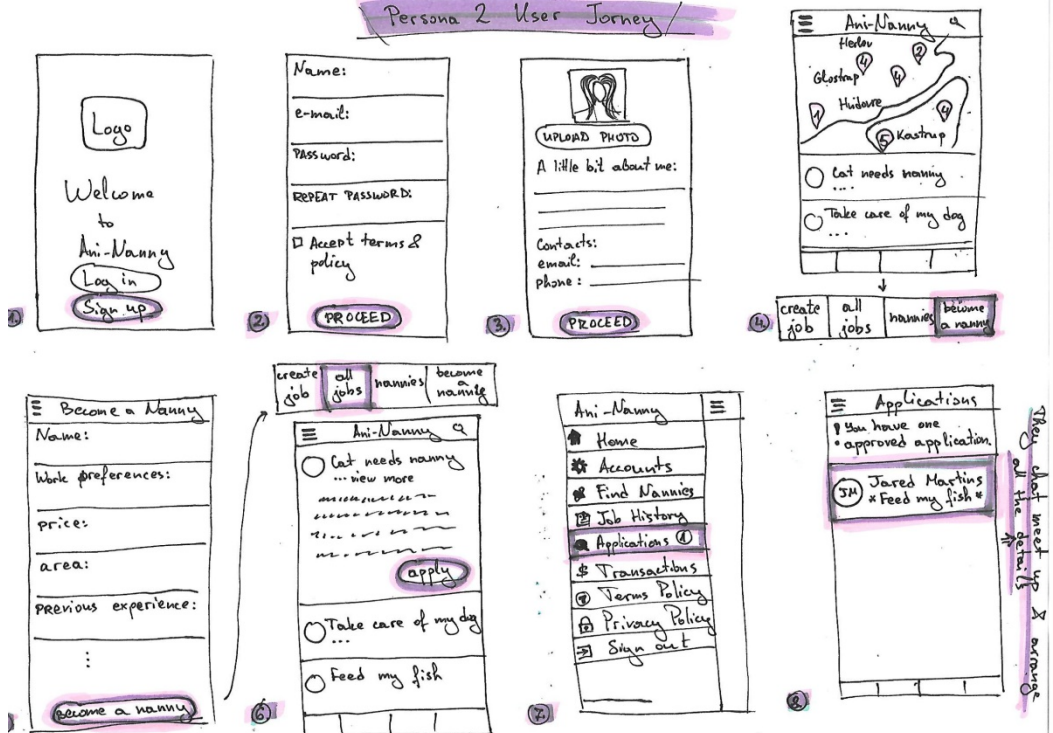 Persona 2 User Jorney
Logo
Welcome
to
Ani-Nanny
Log in
Sign up
1
Name:
e-mail:
PASSword:
REPEAT PASSWORD:
Accept terms &
policy
PROCEED
2.
UPLOAD PHOTO
A little bit about me:
Contacts:
email:
phone:
PROCEED
3.
Ani-Nanny
Herlev
2
4
Glostrup
4
Hvidovre
1
4
5
Kastrup
Cat needs nanny
....
Take care of my dog
...
create job
all jobs
nannies
become a nanny
4.
Become a Nanny
Name:
Work preferences:
price:
area:
PREVIOUS experience:
Become a nanny
create job
all jobs
nannies
become a nannie
Ani-Nanny
Cat needs nanny
... view more
apply
Take care of my dog
...
Feed my fish
6
Ani-Nanny
Home
Accounts
Find Nannies
Job History
Applications 1
$ Transactions
Terms Policy
Privacy Policy
Sign out
7.
Applications
! You have one
approved application.
JM
Jared Martins
* Feed my fish *
8
They chat meet up & arrange
all the details